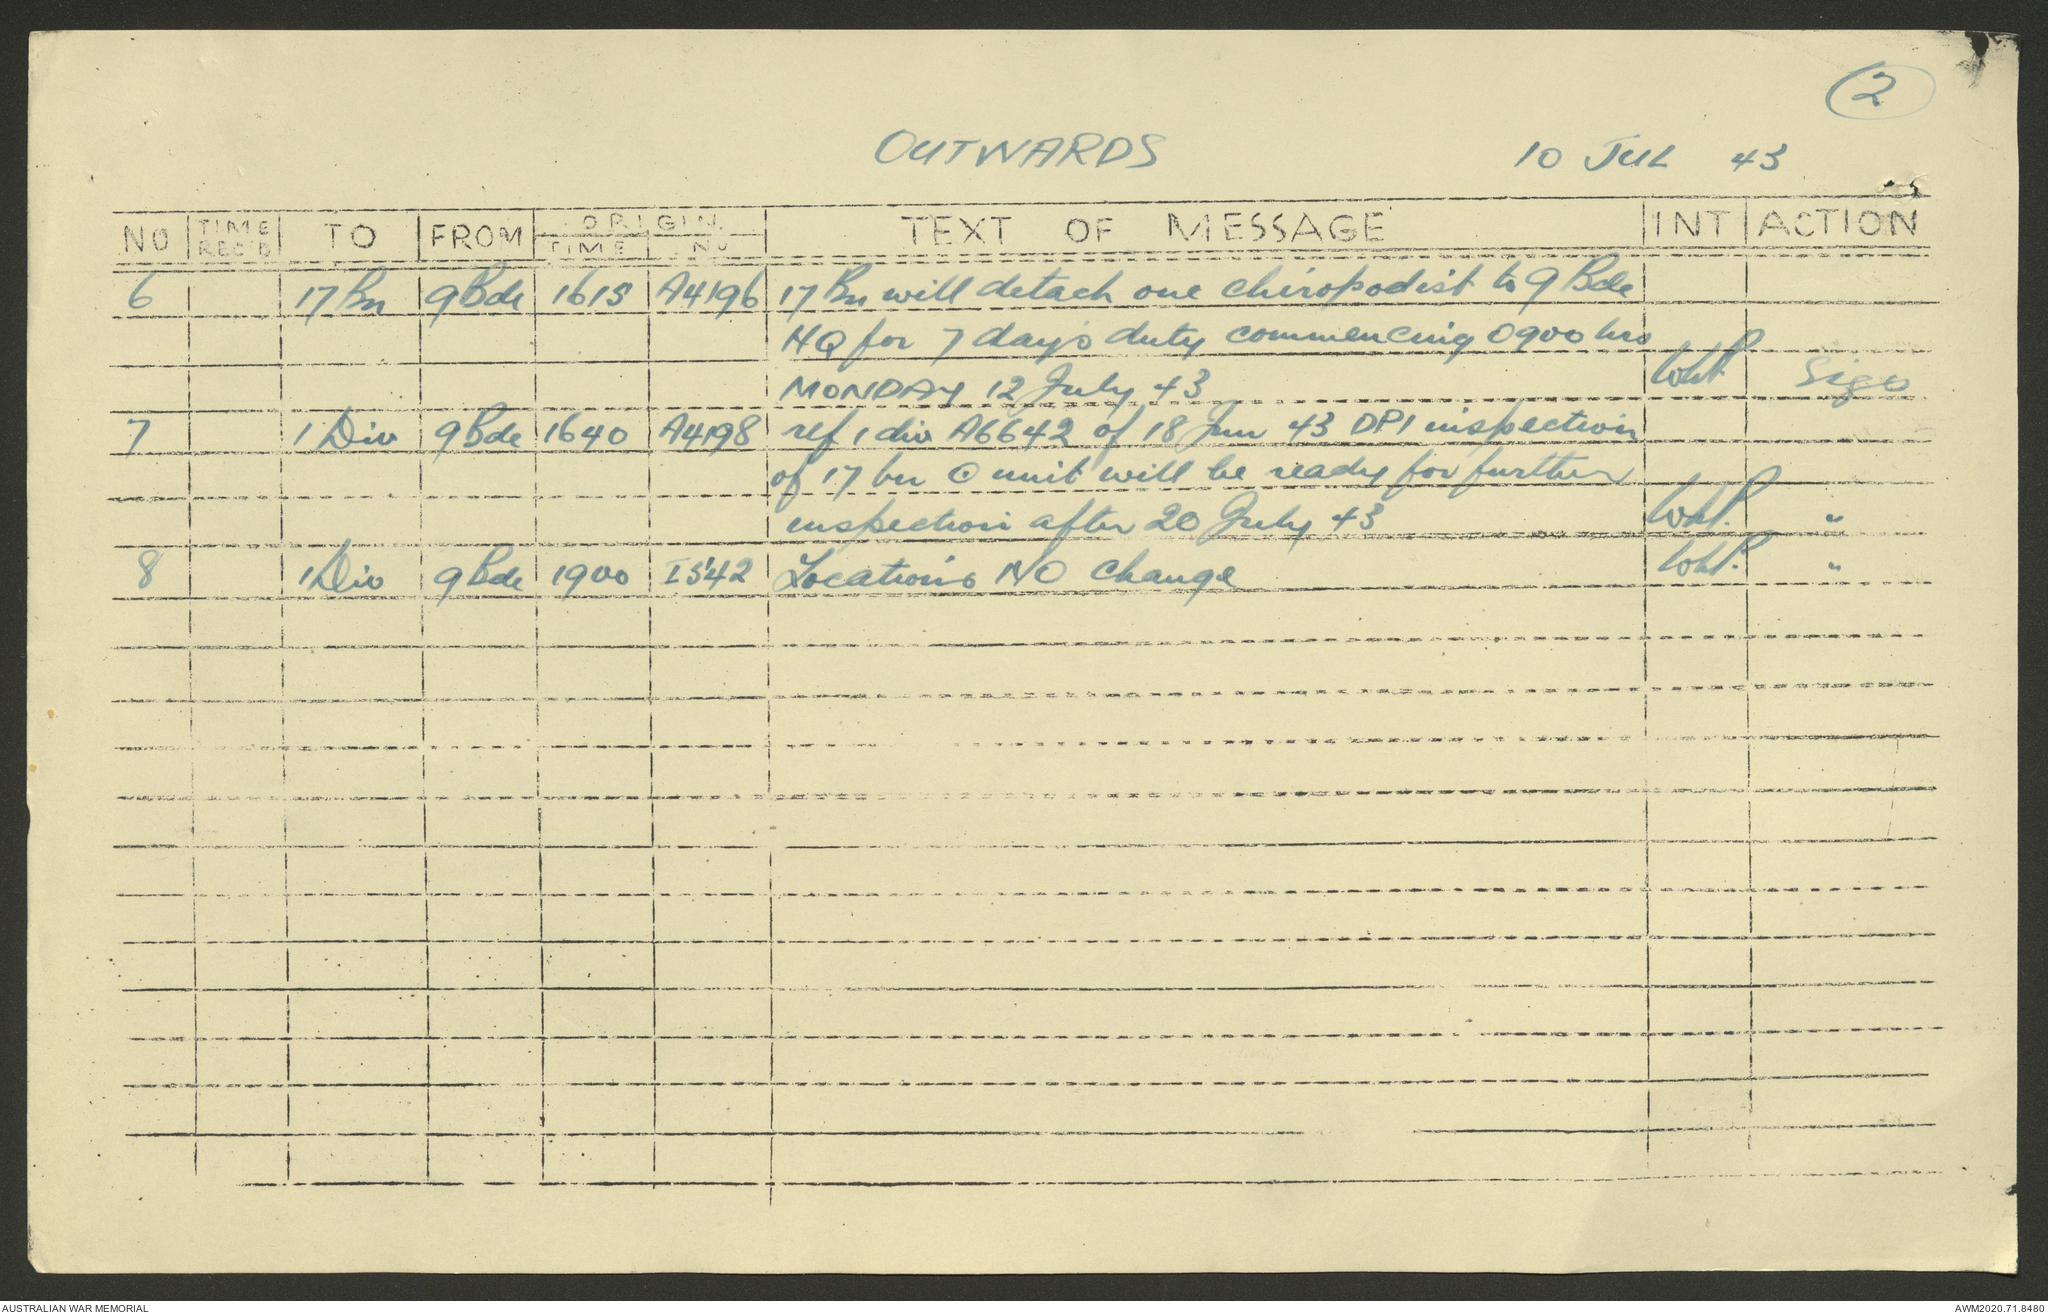 2
OUTWARDS 10 JUL 43
NO TIME REC'D TO FROM ORIGIN. TIME NO TEXT OF MESSAGE INT ACTION
6 17 Bn 9 Bde 1615 A4196 17 Bn will detach one chiropodist to 9 Bde
HQ for 7 days duty commencing 0900 hrs
MONDAY 12 July 43 WHP Sigs
7 1 Div 9 Bde 1640 A4198 ref 1 div A6642 of 18 Jun 43 DP1 inspection
of 17 bn ⊙ unit will be ready for further
inspection after 20 July 43 WHP. "
8 1 Div 9 Bde 1900 I542 Locations NO change WHP. "
AUSTRALIAN WAR MEMORIAL AWM2020.71.8480